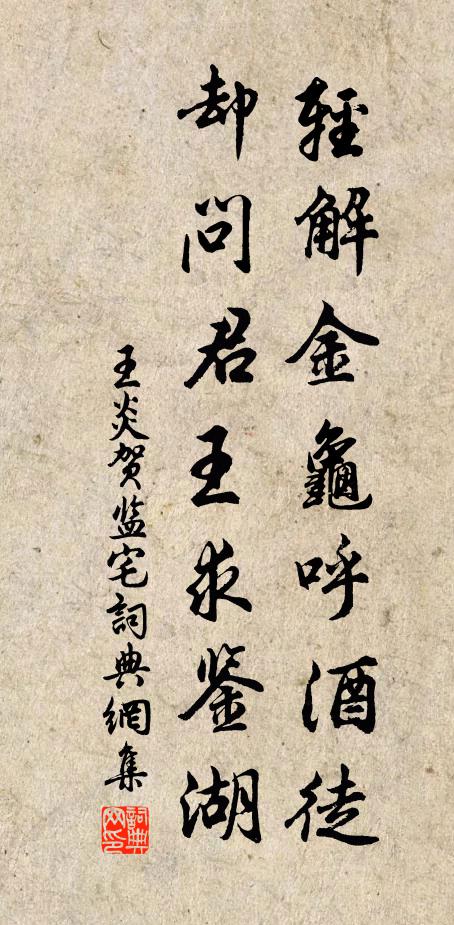 輕解金龜呼酒徒
却問君王求鉴湖
王炎賀监宅詞典網集
詞典网印